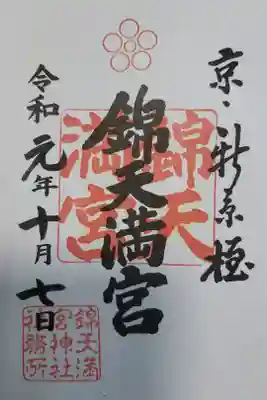 京・新京極
錦天満宮
錦天
満宮
令和元年十月七日
錦天満
宮神社
社務所